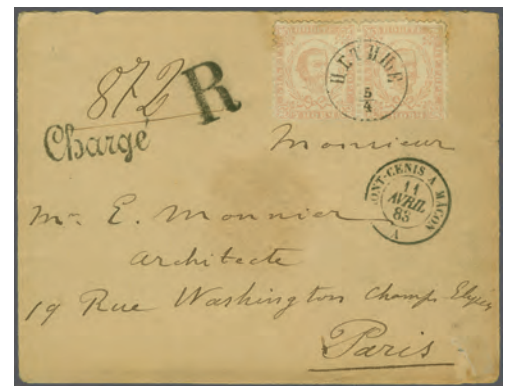 872
R
Chargé
ЦЕТИЊЕ
5
4
Monsieur
MONT-CENIS A MACON
11
AVRIL
83
A
Mr. E. Monnier
Architecte
19 Rue Washington Champs Elysées
Paris